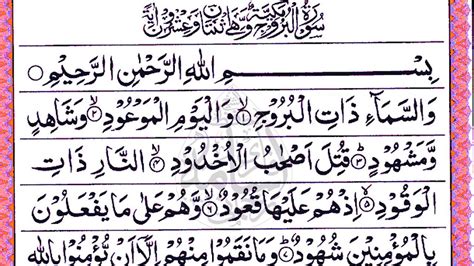 سُوْرَةُ الْبُرُوْجِ مَكِّيَّةٌ وَّهِيَ اثْنَتَانِ وَعِشْرُوْنَ اٰيَةً
بِسْمِ اللهِ الرَّحْمٰنِ الرَّحِيْمِ ○
وَالسَّمَآءِ ذَاتِ الْبُرُوْجِ ۙ۱ وَالْيَوْمِ الْمَوْعُوْدِ ۙ۲ وَشَاهِدٍ
وَّمَشْهُوْدٍ ؕ۳ قُتِلَ اَصْحٰبُ الْاُخْدُوْدِ ۙ۴ النَّارِ ذَاتِ
الْوَقُوْدِ ۙ۵ اِذْهُمْ عَلَيْهَا قُعُوْدٌ ۙ۶ وَّهُمْ عَلٰى مَا يَفْعَلُوْنَ
بِالْمُؤْمِنِيْنَ شُهُوْدٌ ؕ۷ وَمَا نَقَمُوْا مِنْهُمْ اِلَّاۤ اَنْ يُّؤْمِنُوْا بِاللهِ